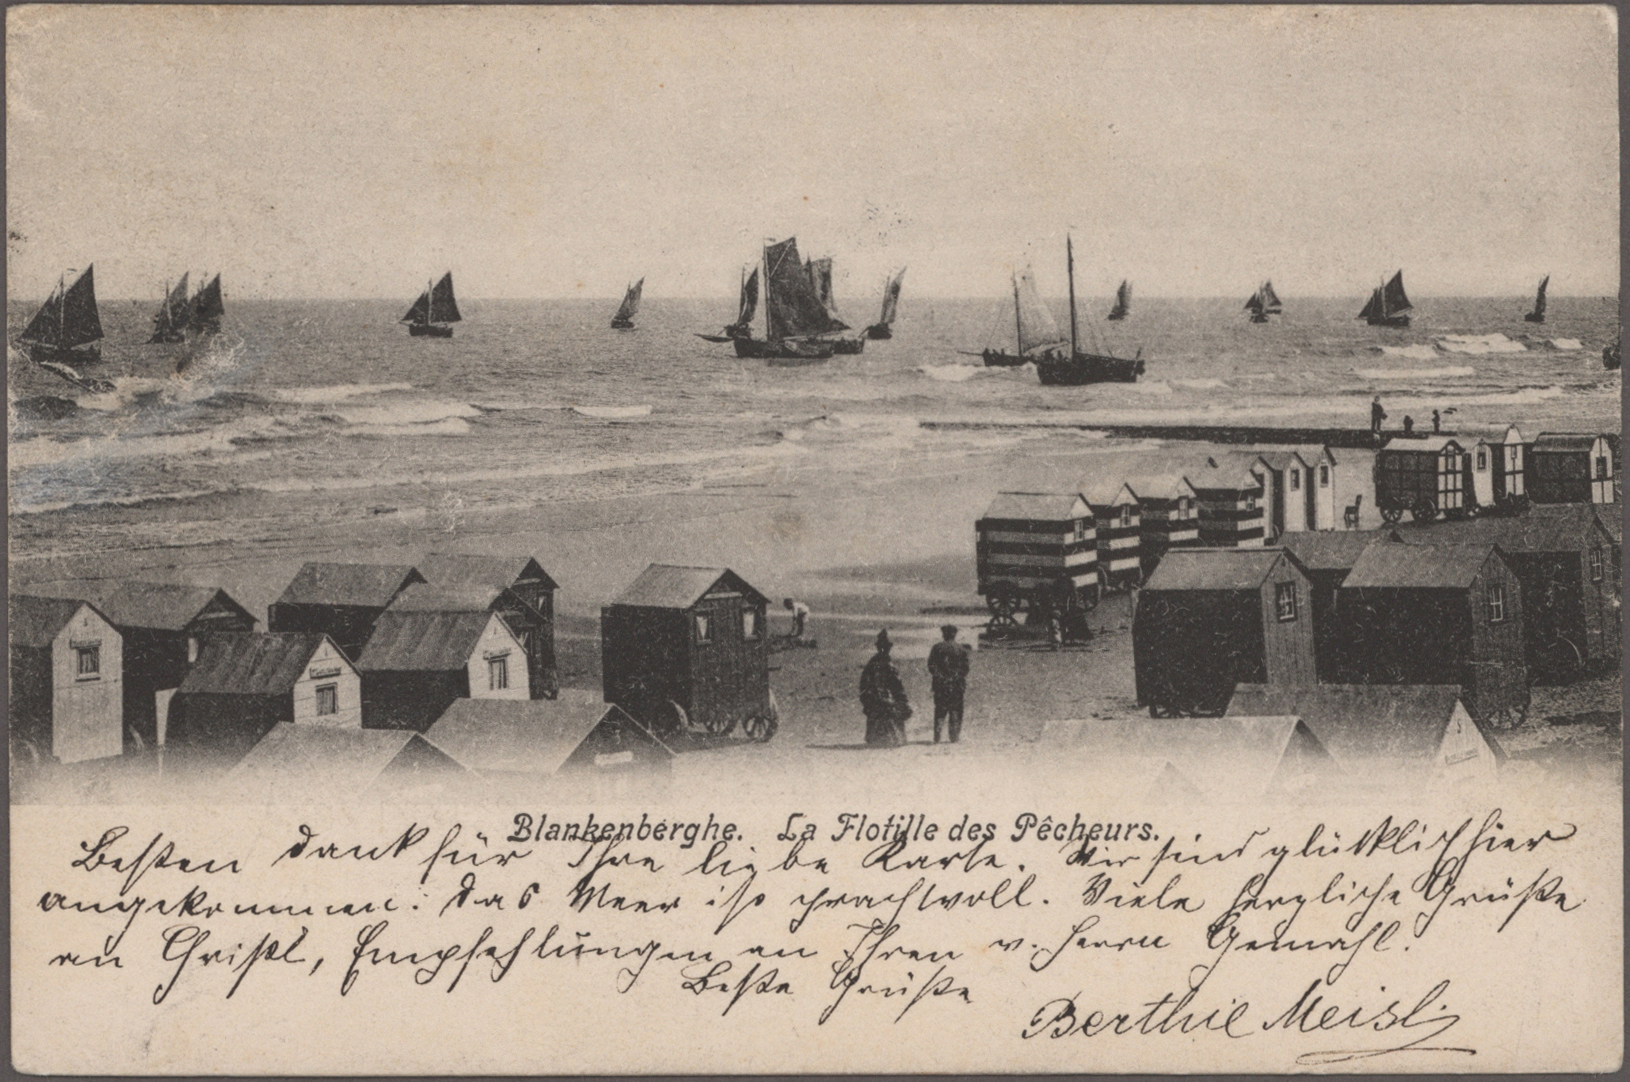 Blankenberghe. La Flotille des Pêcheurs.
Besten Dank für Ihre liebe Karte. Wir sind glücklich hier
angekommen. Das Meer ist prachtvoll. Viele herzliche Grüße
an Christl, Empfehlungen an Ihren v. Herrn Gemahl.
Beste Grüße
Berthie Meisl